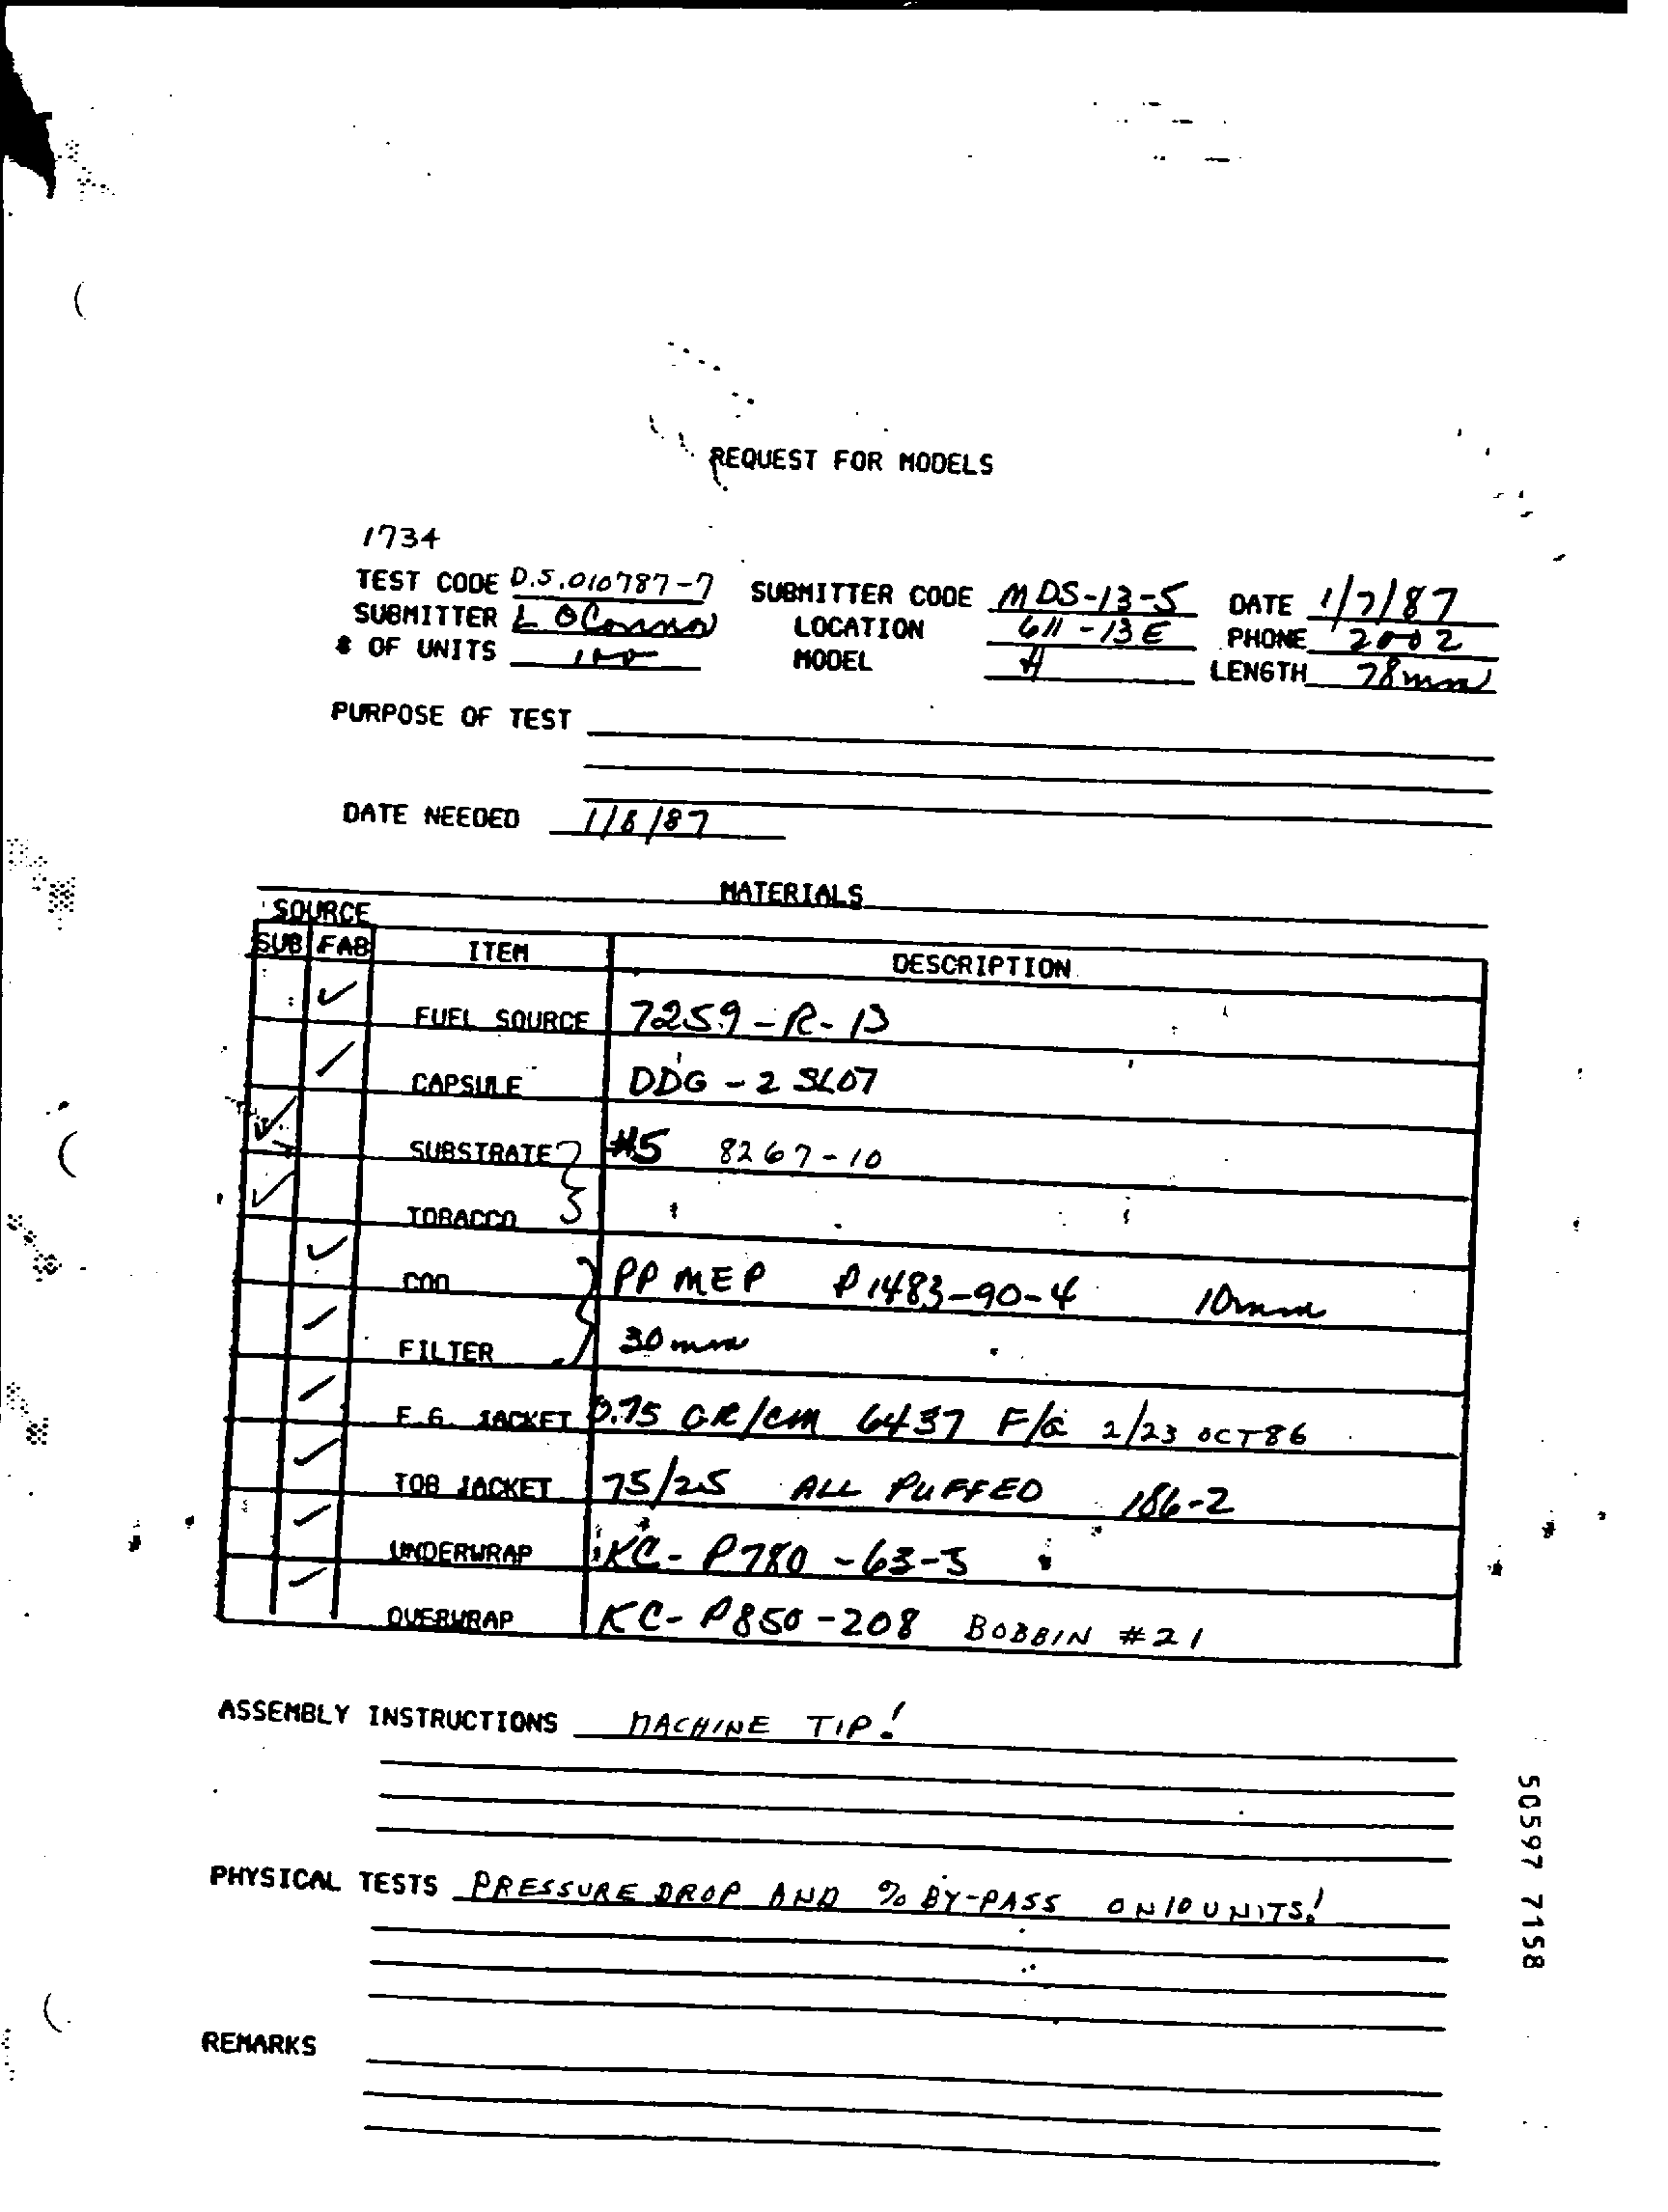 REQUEST FOR MODELS
1734
TEST CODE D.S.010787-7 SUBMITTER CODE MDS-13-5 DATE 1/7/87
SUBMITTER L OConnor LOCATION 611-13E PHONE 2002
# OF UNITS 100 MODEL H LENGTH 78mm
PURPOSE OF TEST
DATE NEEDED 1/8/87
MATERIALS
SOURCE
SUB FAB ITEM DESCRIPTION
✓ FUEL SOURCE 7259-R-13
✓ CAPSULE DDG-2 SLOT
✓ SUBSTRATE #5 8267-10
✓ TOBACCO
✓ COD PP MEP P1483-90-4 10mm
✓ FILTER 30mm
✓ F.G. JACKET 0.75 GR/CM 6437 F/G 2/23 OCT86
✓ TOB JACKET 75/25 ALL PUFFED 186-2
✓ UNDERWRAP KC-P780-63-5
✓ OVERWRAP KC-P850-208 BOBBIN #21
ASSEMBLY INSTRUCTIONS MACHINE TIP!
PHYSICAL TESTS PRESSURE DROP AND % BY-PASS ON 10 UNITS!
REMARKS
50597 7158